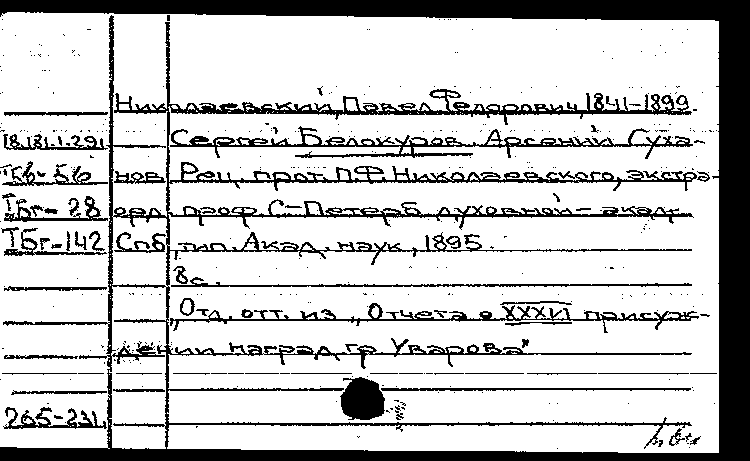 Николаевский, Павел Федорович, 1841-1899.
18.181.1.291 Сергей Белокуров. Арсений Суха-
Тбв-5б нов. Рец. прот. П.Ф. Николаевского, экстра-
Тбг-28 орд. проф. С-Петерб. духовной акад.
Тбг-142 Спб, тип. Акад. наук, 1895.
8с.
„Отд. отт. из „Отчета о XXXVI присуж-
дении наград гр. Уварова"
265-231.